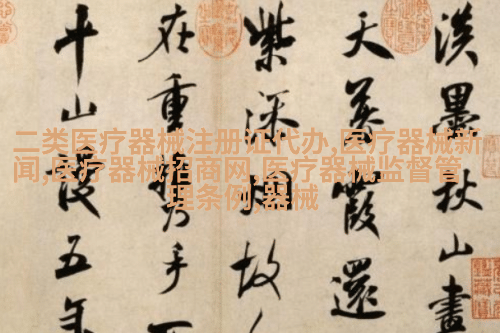 二类医疗器械注册证代办,医疗器械新
闻,医疗器械招商网,医疗器械监督管
理条例,器械
淡墨秋山畫
天暮霞還
紫添烟故
在重携手
平山謾五年